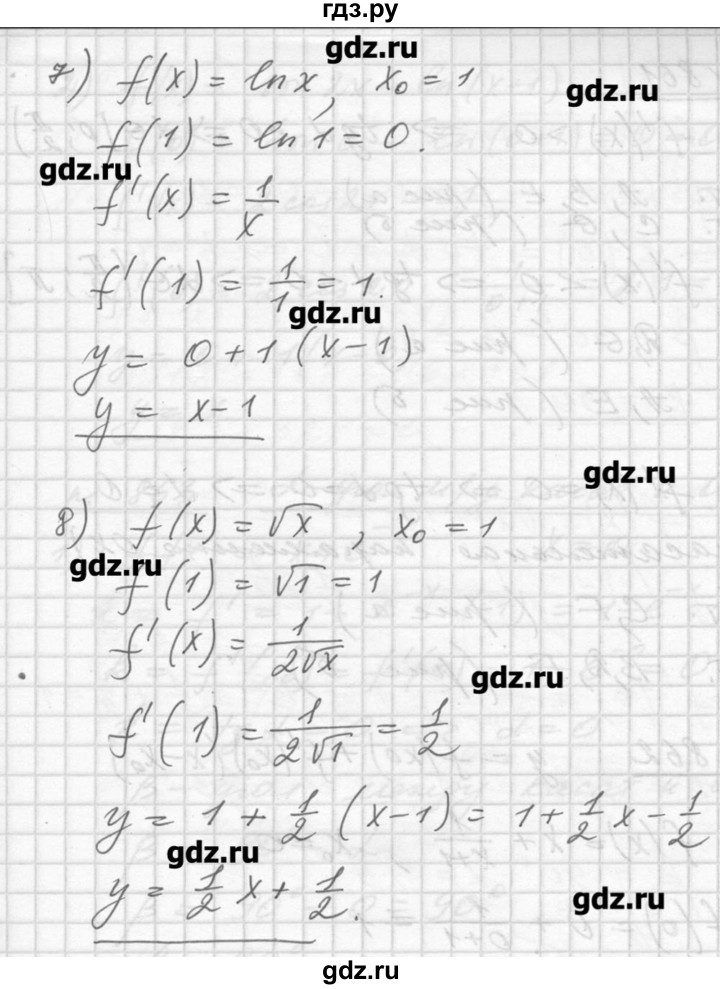 гдз.ру
gdz.ru
7) f(x) = ln x, x₀ = 1
gdz.ru
f(1) = ln 1 = 0.
gdz.ru
f'(x) = 1/x
f'(1) = 1/1 = 1.
gdz.ru
y = 0 + 1 (x - 1)
y = x - 1
gdz.ru
8) f(x) = √x, x₀ = 1
gdz.ru
f(1) = √1 = 1
f'(x) = 1/(2√x)
gdz.ru
f'(1) = 1/(2√1) = 1/2
y = 1 + 1/2 (x - 1) = 1 + 1/2 x - 1/2
gdz.ru
y = 1/2 x + 1/2.
gdz.ru
gdz.ru